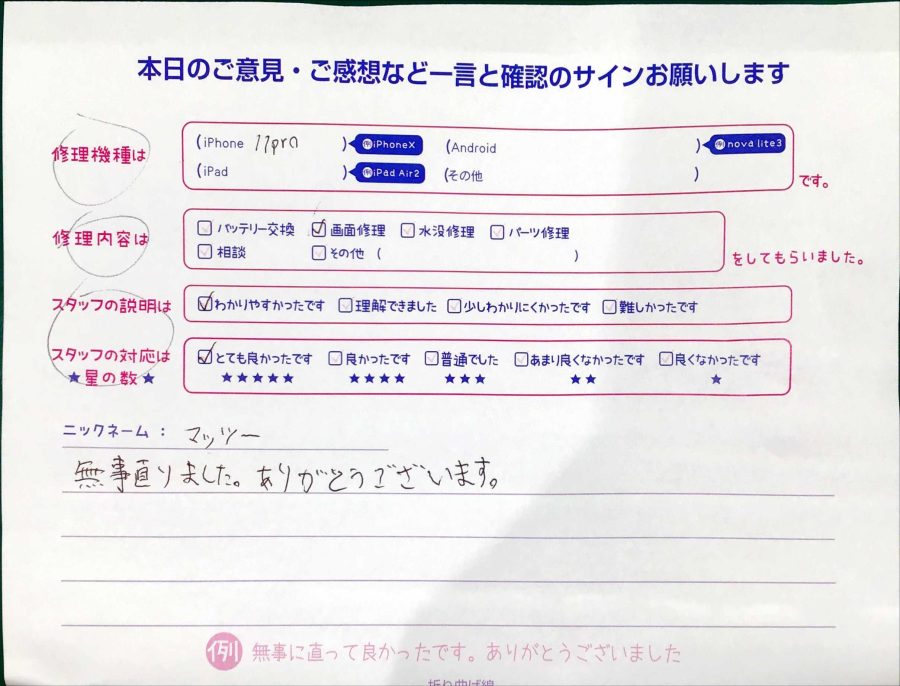 本日のご意見・ご感想など一言と確認のサインお願いします
修理機種は
(iPhone 11pro ) 例iPhoneX (Android ) 例nova lite3
(iPad ) 例iPad Air2 (その他 ) です。
修理内容は
バッテリー交換 画面修理 水没修理 パーツ修理
相談 その他 ( ) をしてもらいました。
スタッフの説明は わかりやすかったです 理解できました 少しわかりにくかったです 難しかったです
スタッフの対応は とても良かったです 良かったです 普通でした あまり良くなかったです 良くなかったです
★星の数★ ★★★★★ ★★★★ ★★★ ★★ ★
ニックネーム: マッツー
無事直りました。ありがとうございます。
例 無事に直って良かったです。ありがとうございました
折り曲げ線